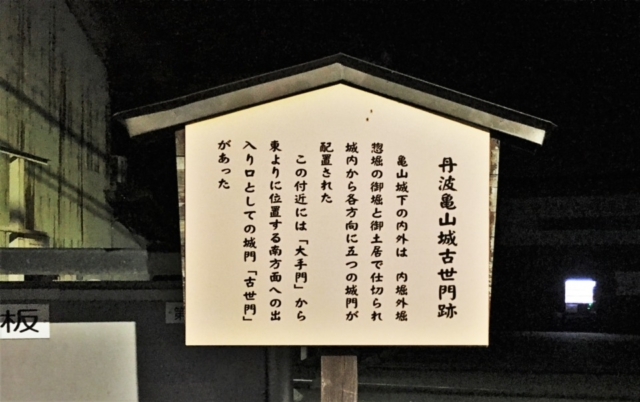 丹波亀山城古世門跡
亀山城下の内外は 内堀外堀
惣堀の御堀と御土居で仕切られ
城内から各方向に五つの城門が
配置された
この付近には「大手門」から
東よりに位置する南方面への出
入り口としての城門「古世門」
があった
板